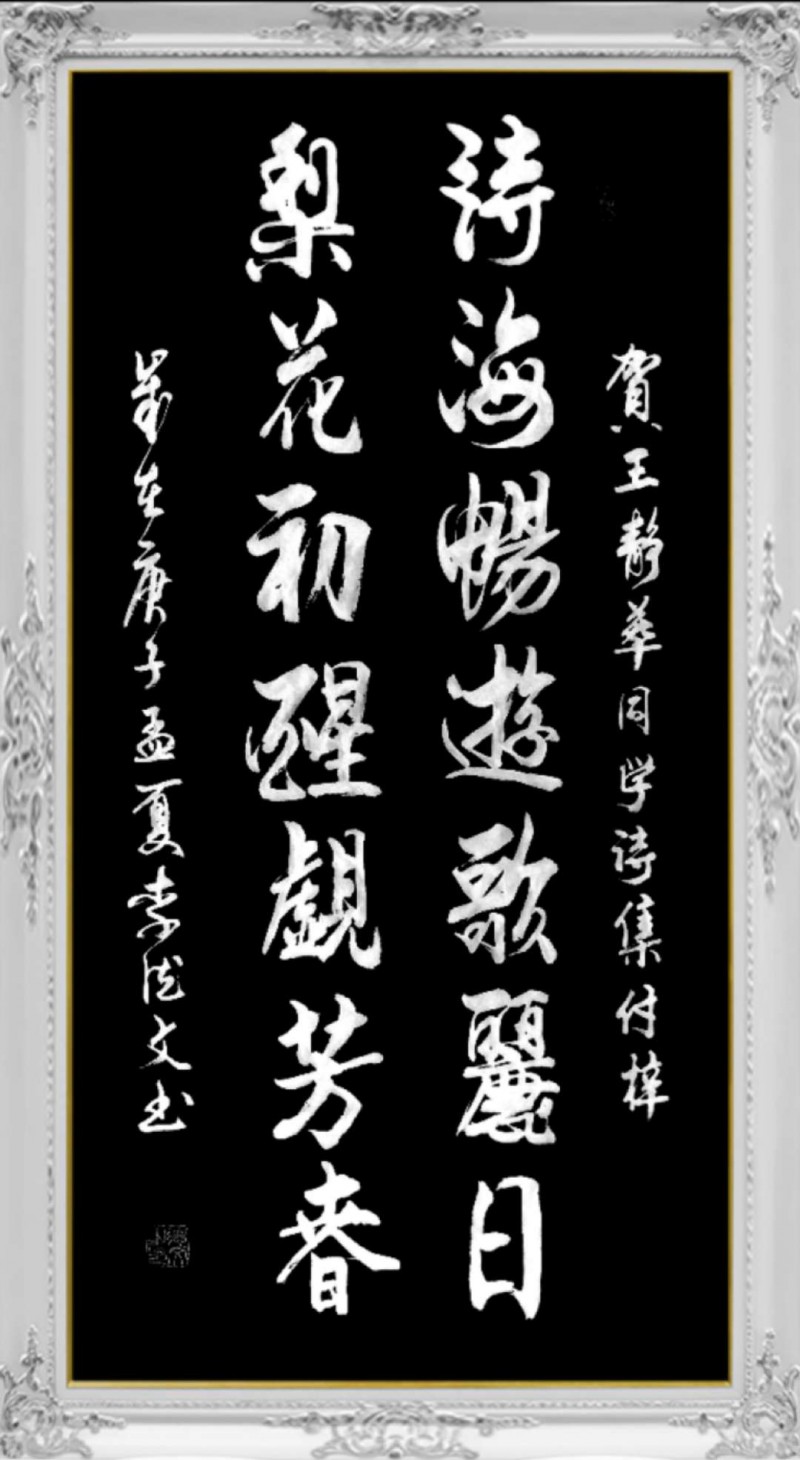 賀王靜華同学诗集付梓
詩海暢遊歌麗日
梨花初醒觀芳春
歲在庚子孟夏李德文书